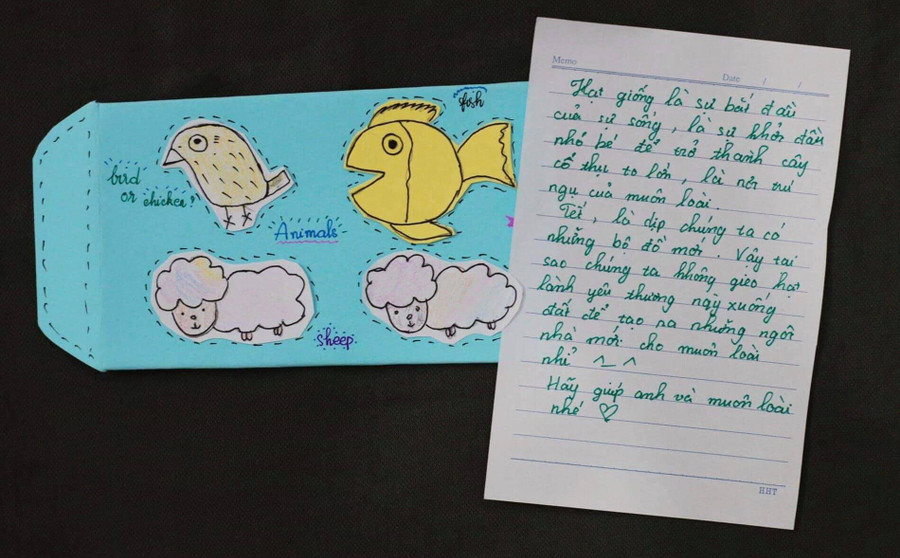 bird
or chicken?
fosh
Animals
sheep.
Memo
Date / /
Hạt giống là sự bắt đầu
của sự sống, là sự khởi đầu
nhỏ bé để trở thành cây
cổ thụ to lớn, là nơi trú
ngụ của muôn loài.
Tết, là dịp chúng ta có
những bộ đồ mới. Vậy tại
sao chúng ta không gieo hạt
lành yêu thương này xuống
đất để tạo ra những ngôi
nhà mới cho muôn loài
nhỉ ^_^
Hãy giúp anh và muôn loài
nhé ♡
HHT